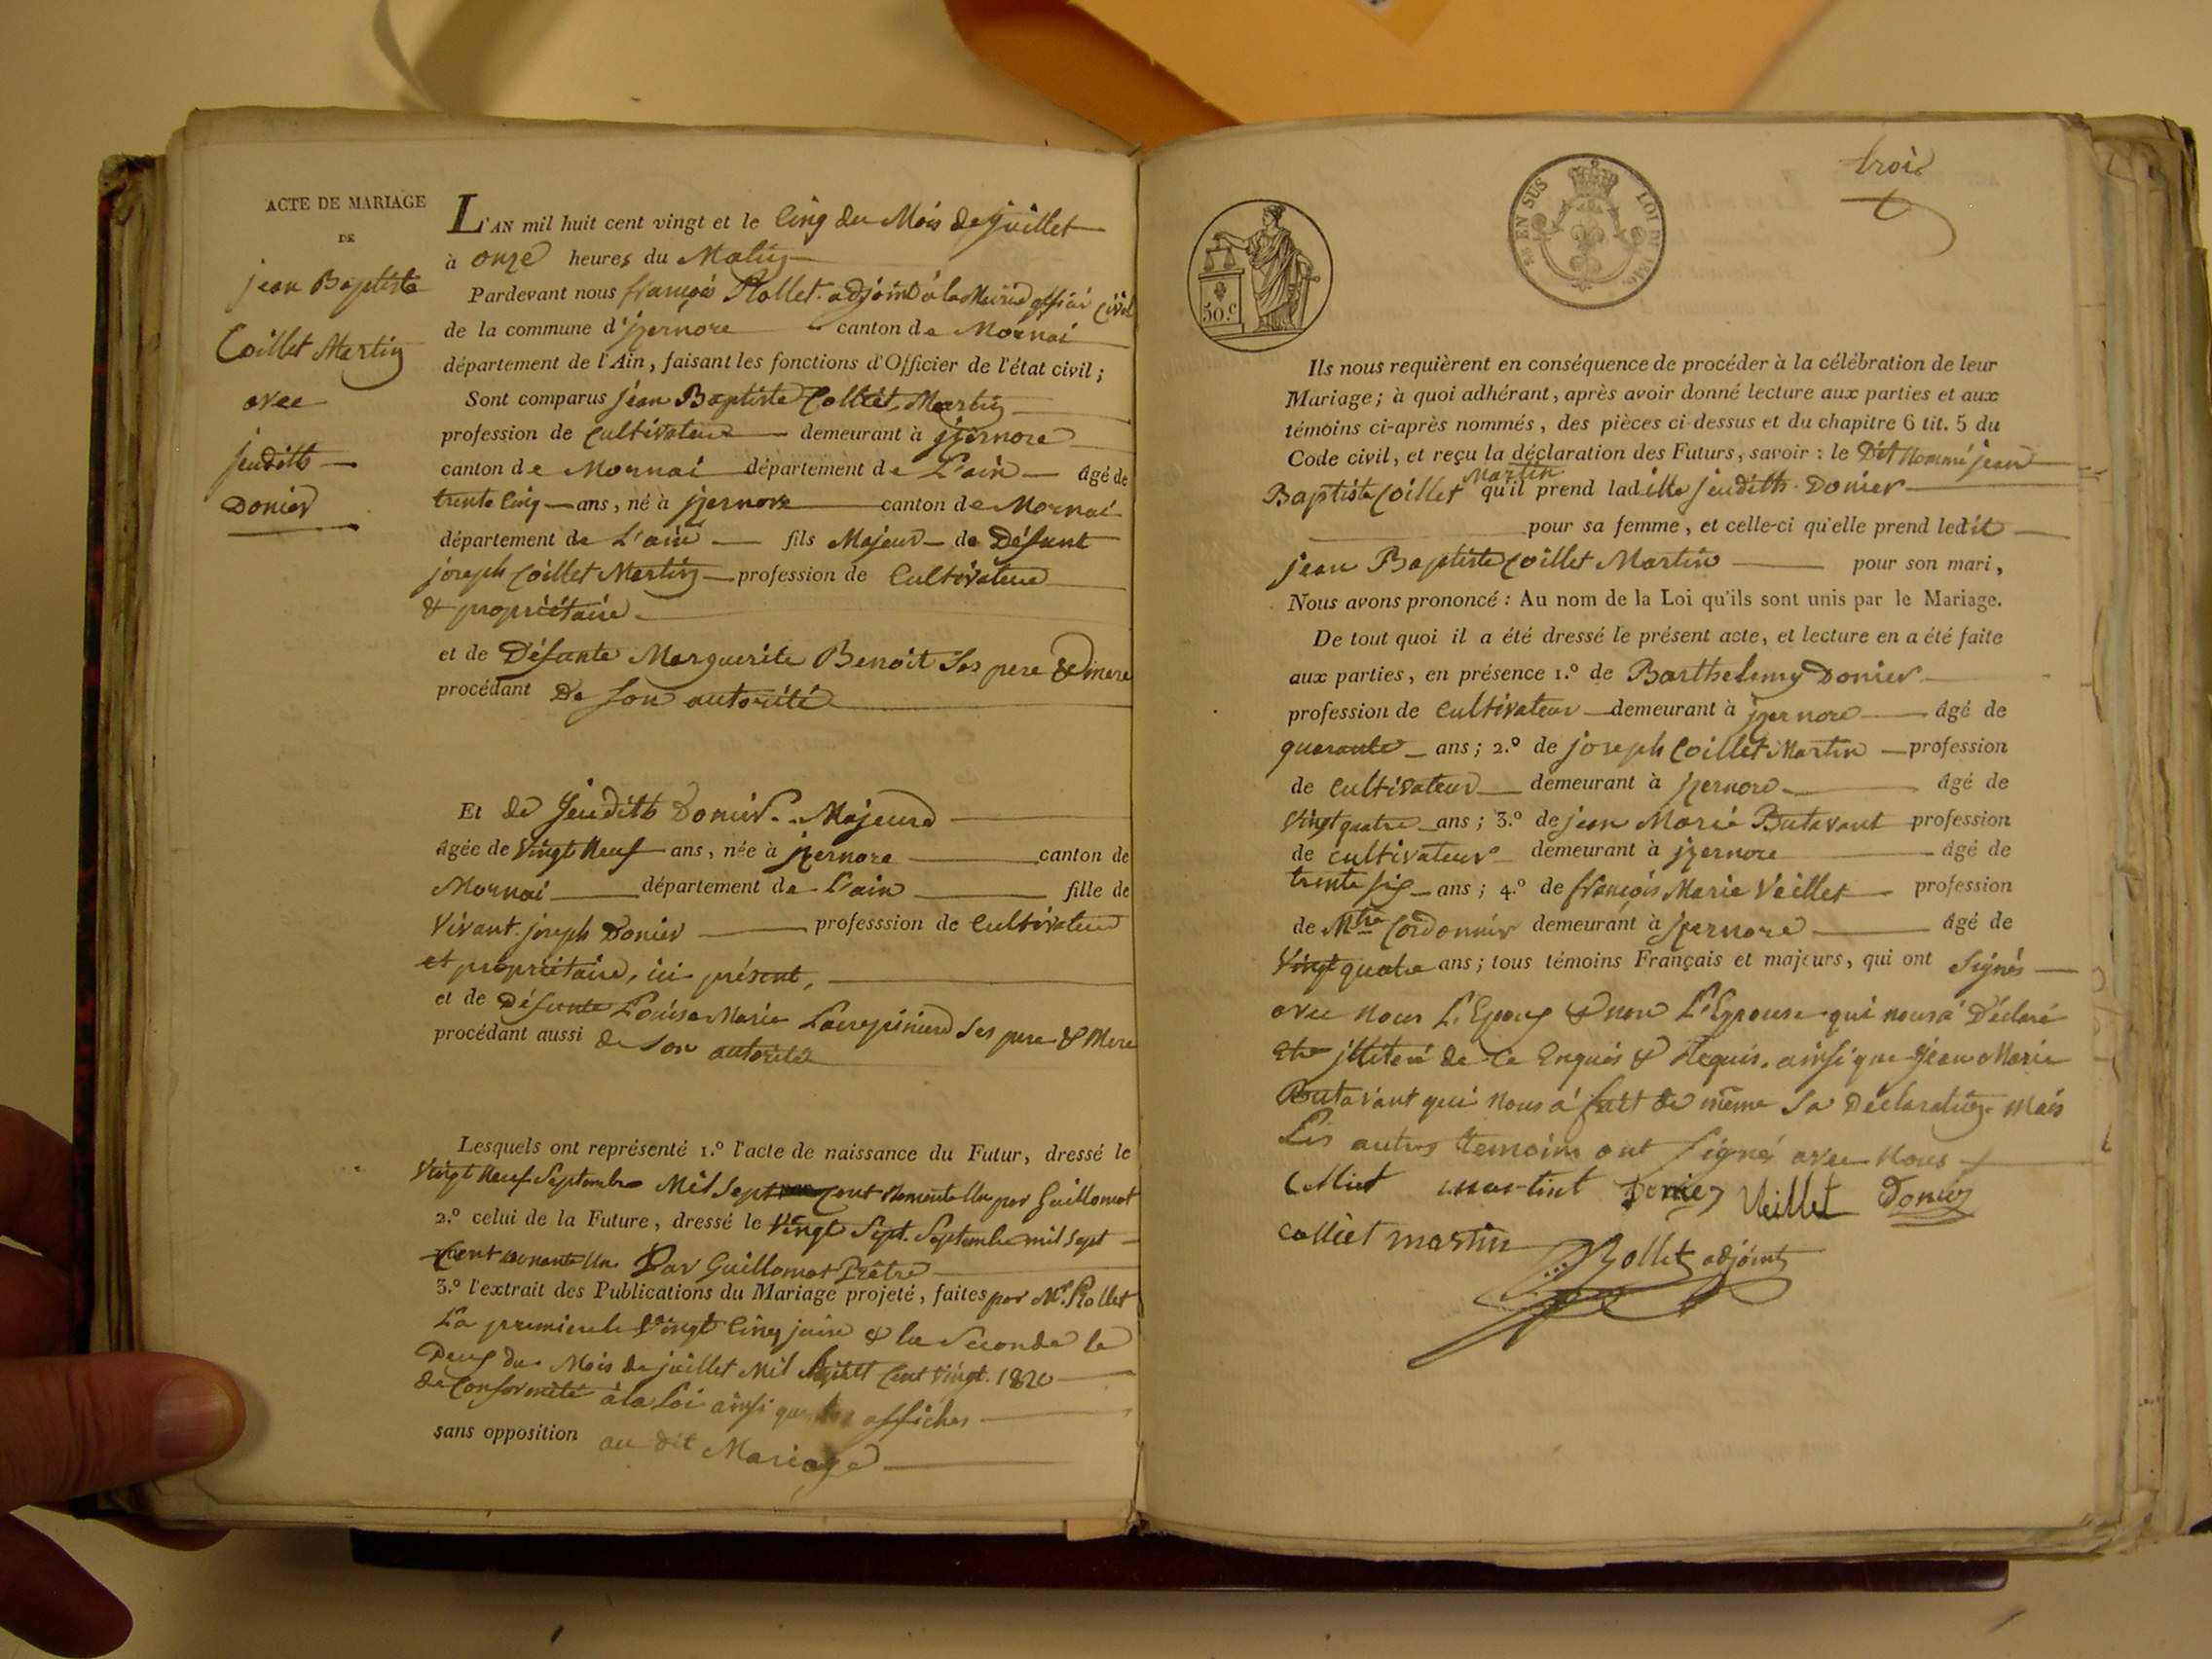 ACTE DE MARIAGE
DE
jean Baptiste
Coillet Martin
avec
Jeudith
Donier
L'AN mil huit cent vingt et le Cinq du Mois de juillet
à onze heures du Matin
Pardevant nous françois Rollet adjoint à la Mairie officié Civil
de la commune d'jzernore canton de Mornai
département de l'Ain, faisant les fonctions d'Officier de l'état civil;
Sont comparus jean Baptiste Colliet Martin
profession de Cultivateur demeurant à jzernore
canton de Mornai département de L'ain âgé de
trente Cinq ans, né à jzernore canton de Mornai
département de L'ain fils Majeur de Défunt
joseph Coillet Martin profession de Cultivateur
& propriétaire
et de Défunte Marguerite Benoit Ses pere & mere
procédant De Son autorité
Et de Jeudith Donier Majeure
âgée de Vingt Neuf ans, née à jzernore canton de
Mornai département de L'ain fille de
Vivant joseph Donier professsion de Cultivateur
et propriétaire, ici présent,
et de Défunte Louise Marie Ses pere & Mere
procédant aussi de Son autorité
Lesquels ont représenté 1.º l'acte de naissance du Futur, dressé le
Vingt Neuf Septembre Mil Sept Cent Nonante Un par Guillomot
2.º celui de la Future, dressé le Vingt Sept Septembre mil Sept
Cent nonante Un Par Guillomot Prêtre
3.º l'extrait des Publications du Mariage projeté, faites par Mr. Rollet
La premiere le Vingt Cinq juin & la Seconde le
Deux du Mois de juillet Mil Huit Cent Vingt. 1820
de Conformité à la Loi ainsi que les affiches
sans opposition au dit Mariage
trois
EN SUS LOI DE 1816
50.c
Ils nous requièrent en conséquence de procéder à la célébration de leur
Mariage; à quoi adhérant, après avoir donné lecture aux parties et aux
témoins ci-après nommés, des pièces ci-dessus et du chapitre 6 tit. 5 du
Code civil, et reçu la déclaration des Futurs, savoir: le Dit Nommé jean
Martin
Baptiste Coillet qu'il prend laditte Jeudith Donier
pour sa femme, et celle-ci qu'elle prend ledit
jean Baptiste Coillet Martin pour son mari,
Nous avons prononcé: Au nom de la Loi qu'ils sont unis par le Mariage.
De tout quoi il a été dressé le présent acte, et lecture en a été faite
aux parties, en présence 1.º de Barthelemy Donier
profession de Cultivateur demeurant à jzernore âgé de
quarante ans; 2.º de joseph Coillet Martin profession
de Cultivateur demeurant à jzernore âgé de
Vingt quatre ans; 3.º de jean Marie Butavant profession
de cultivateur demeurant à jzernore âgé de
trente Six ans; 4.º de françois Marie Veillet profession
de Mtre Cordonnier demeurant à jzernore âgé de
Vingt quatre ans; tous témoins Français et majeurs, qui ont Signés
avec nous L'Epoux & non L'Epouse qui nous à Déclaré
Etre jlliteré de Ce Enquis & Requis. ainsi que Jean Marie
Butavant qui Nous à fait de même Sa Déclaration. Mais
Les autres temoins ont Signé avec Nous
Colliet martint Donier Veillet Donier
colliet martin Rollet adjoint